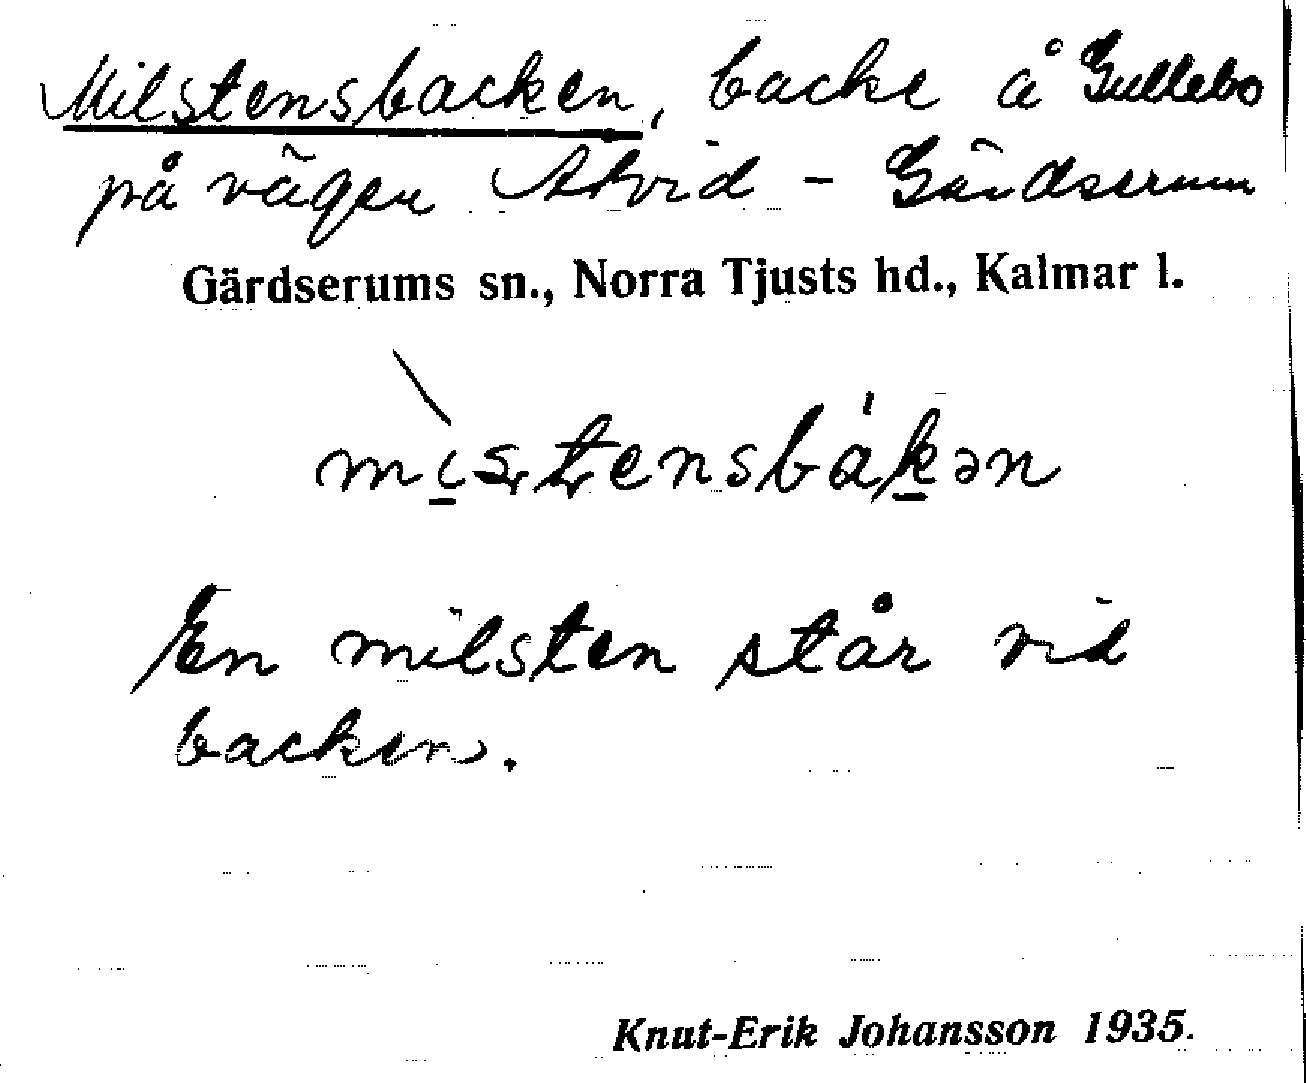 Milstensbacken, backe å Gullebo
på vägen Atvid - Gärdserum
Gärdserums sn., Norra Tjusts hd., Kalmar l.
mistensbákən
En milsten står vid
backen.
Knut-Erik Johansson 1935.